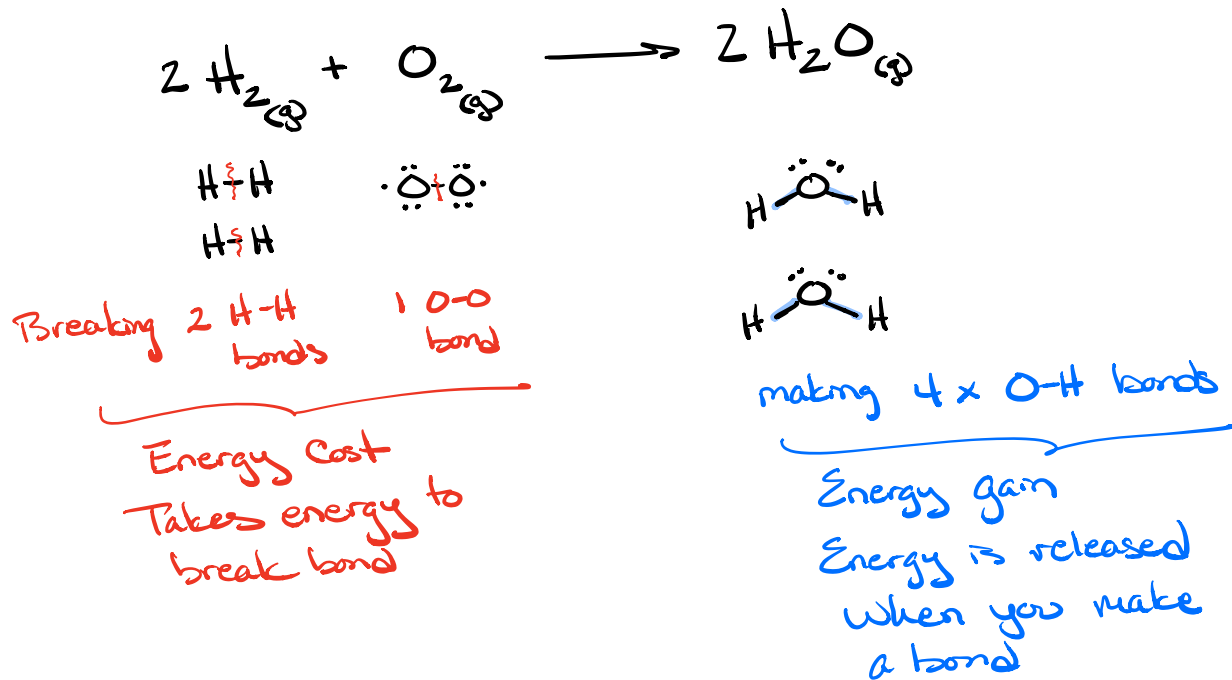 2 H₂(g) + O₂(g) ⟶ 2 H₂O(g)
H-H
H-H
·O-O·
O
H H
O
H H
Breaking 2 H-H bonds
1 O-O bond
Energy Cost
Takes energy to
break bond
making 4 x O-H bonds
Energy gain
Energy is released
when you make
a bond